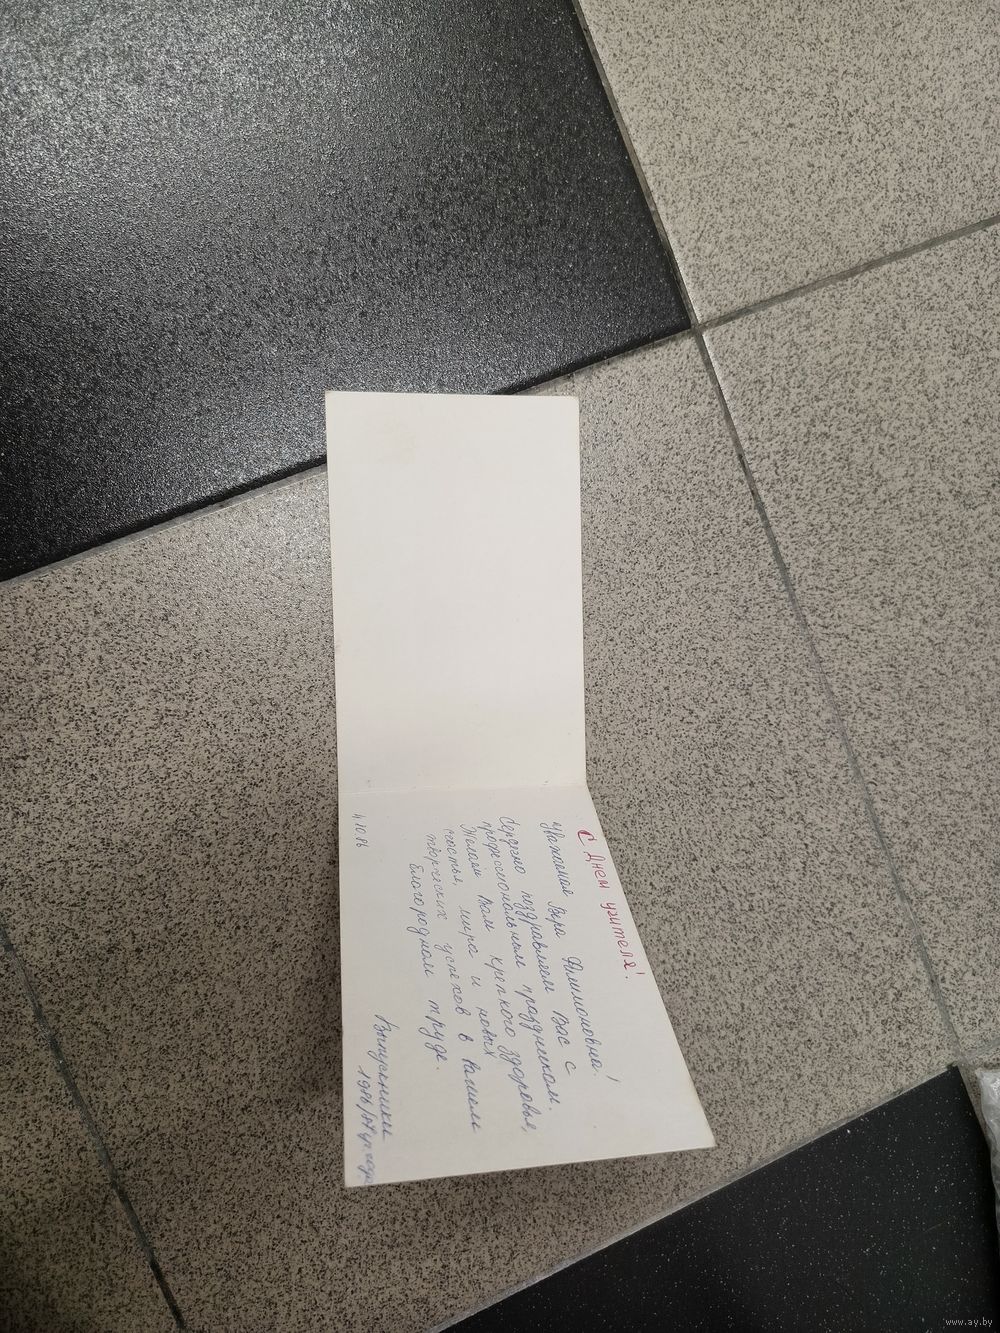 С Днем учителя!
Уважаемая Вера Филимоновна!
Сердечно поздравляем Вас с
профессиональным праздником.
Желаем Вам крепкого здоровья,
счастья, мира и новых
творческих успехов в Вашем
благородном труде.
Выпускники
4.10.86
www.ay.by